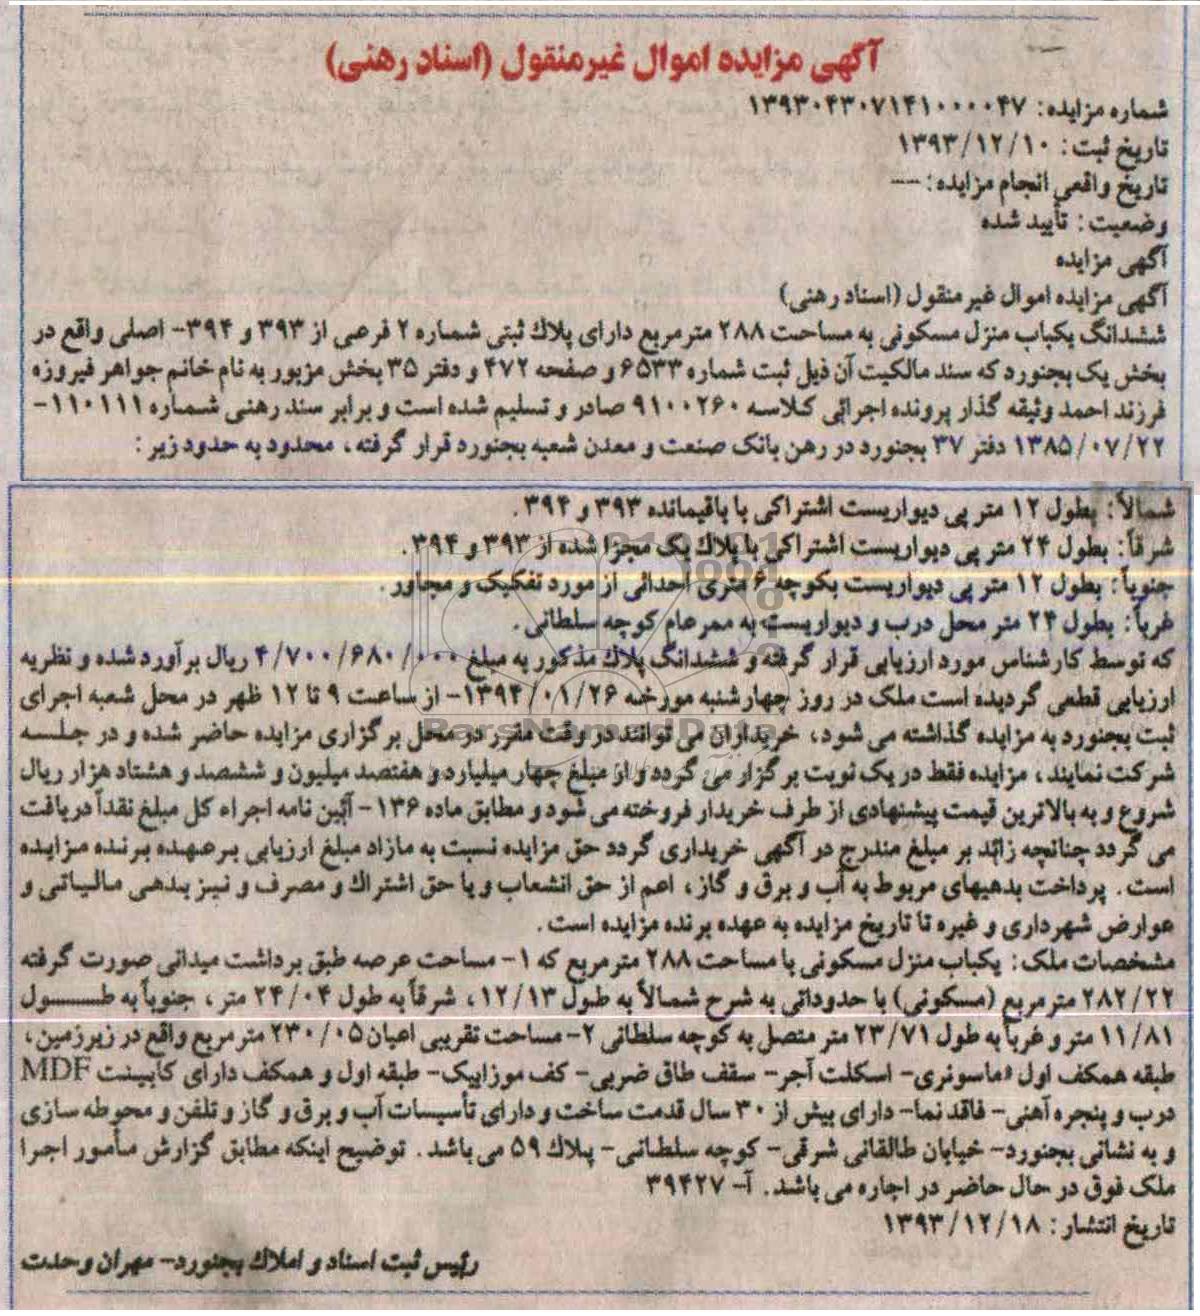 آگهی مزایده اموال غیرمنقول (اسناد رهنی)
شماره مزایده: ۱۳۹۳۰۴۳۰۷۱۴۱۰۰۰۰۴۷
تاریخ ثبت: ۱۳۹۳/۱۲/۱۰
تاریخ واقعی انجام مزایده: ----
وضعیت: تأیید شده
آگهی مزایده
آگهی مزایده اموال غیر منقول (اسناد رهنی)
ششدانگ یکباب منزل مسکونی به مساحت ۲۸۸ مترمربع دارای پلاک ثبتی شماره ۲ فرعی از ۳۹۳ و ۳۹۴- اصلی واقع در
بخش یک بجنورد که سند مالکیت آن ذیل ثبت شماره ۶۵۳۳ و صفحه ۴۷۲ و دفتر ۳۵ بخش مزبور به نام خانم جواهر فیروزه
فرزند احمد وثیقه گذار پرونده اجرائی کلاسه ۹۱۰۰۲۶۰ صادر و تسلیم شده است و برابر سند رهنی شماره ۱۱۰۱۱۱-
۱۳۸۵/۰۷/۲۲ دفتر ۳۷ بجنورد در رهن بانک صنعت و معدن شعبه بجنورد قرار گرفته، محدود به حدود زیر:
شمالاً: بطول ۱۲ متر پی دیواریست اشتراکی با باقیمانده ۳۹۳ و ۳۹۴.
شرقاً: بطول ۲۴ متر پی دیواریست اشتراکی با پلاک یک مجزا شده از ۳۹۳ و ۳۹۴.
جنوباً: بطول ۱۲ متر پی دیواریست بکوچه ۶ متری احداثی از مورد تفکیک و مجاور.
غرباً: بطول ۲۴ متر محل درب و دیواریست به ممرعام کوچه سلطانی.
که توسط کارشناس مورد ارزیابی قرار گرفته و ششدانگ پلاک مذکور به مبلغ ۴/۷۰۰/۶۸۰/۰۰۰ ریال برآورد شده و نظریه
ارزیابی قطعی گردیده است ملک در روز چهارشنبه مورخه ۱۳۹۴/۰۱/۲۶- از ساعت ۹ تا ۱۲ ظهر در محل شعبه اجرای
ثبت بجنورد به مزایده گذاشته می شود، خریداران می توانند در وقت مقرر در محل برگزاری مزایده حاضر شده و در جلسه
شرکت نمایند، مزایده فقط در یک نوبت برگزار می گردد و از مبلغ چهار میلیارد و هفتصد میلیون و ششصد و هشتاد هزار ریال
شروع و به بالاترین قیمت پیشنهادی از طرف خریدار فروخته می شود و مطابق ماده ۱۳۶- آئین نامه اجراء کل مبلغ نقداً دریافت
می گردد چنانچه زائد بر مبلغ مندرج در آگهی خریداری گردد حق مزایده نسبت به مازاد مبلغ ارزیابی برعهده برنده مزایده
است. پرداخت بدهیهای مربوط به آب و برق و گاز، اعم از حق انشعاب و یا حق اشتراک و مصرف و نیز بدهی مالیاتی و
عوارض شهرداری و غیره تا تاریخ مزایده به عهده برنده مزایده است.
مشخصات ملک: یکباب منزل مسکونی با مساحت ۲۸۸ مترمربع که ۱- مساحت عرصه طبق برداشت میدانی صورت گرفته
۲۸۲/۲۲ مترمربع (مسکونی) با حدوداتی به شرح شمالاً به طول ۱۲/۱۳، شرقاً به طول ۲۴/۰۴ متر، جنوباً به طول
۱۱/۸۱ متر و غرباً به طول ۲۳/۷۱ متر متصل به کوچه سلطانی ۲- مساحت تقریبی اعیان ۲۳۰/۰۵ مترمربع واقع در زیرزمین،
طبقه همکف اول ماسونری- اسکلت آجر- سقف طاق ضربی- کف موزاییک- طبقه اول و همکف دارای کابینت MDF
درب و پنجره آهنی- فاقد نما- دارای بیش از ۳۰ سال قدمت ساخت و دارای تأسیسات آب و برق و گاز و تلفن و محوطه سازی
و به نشانی بجنورد- خیابان طالقانی شرقی- کوچه سلطانی- پلاک ۵۹ می باشد. توضیح اینکه مطابق گزارش مأمور اجرا
ملک فوق در حال حاضر در اجاره می باشد. آ- ۳۹۴۲۷
تاریخ انتشار: ۱۳۹۳/۱۲/۱۸
رئیس ثبت اسناد و املاک بجنورد- مهران وحدت
ParsNamadData